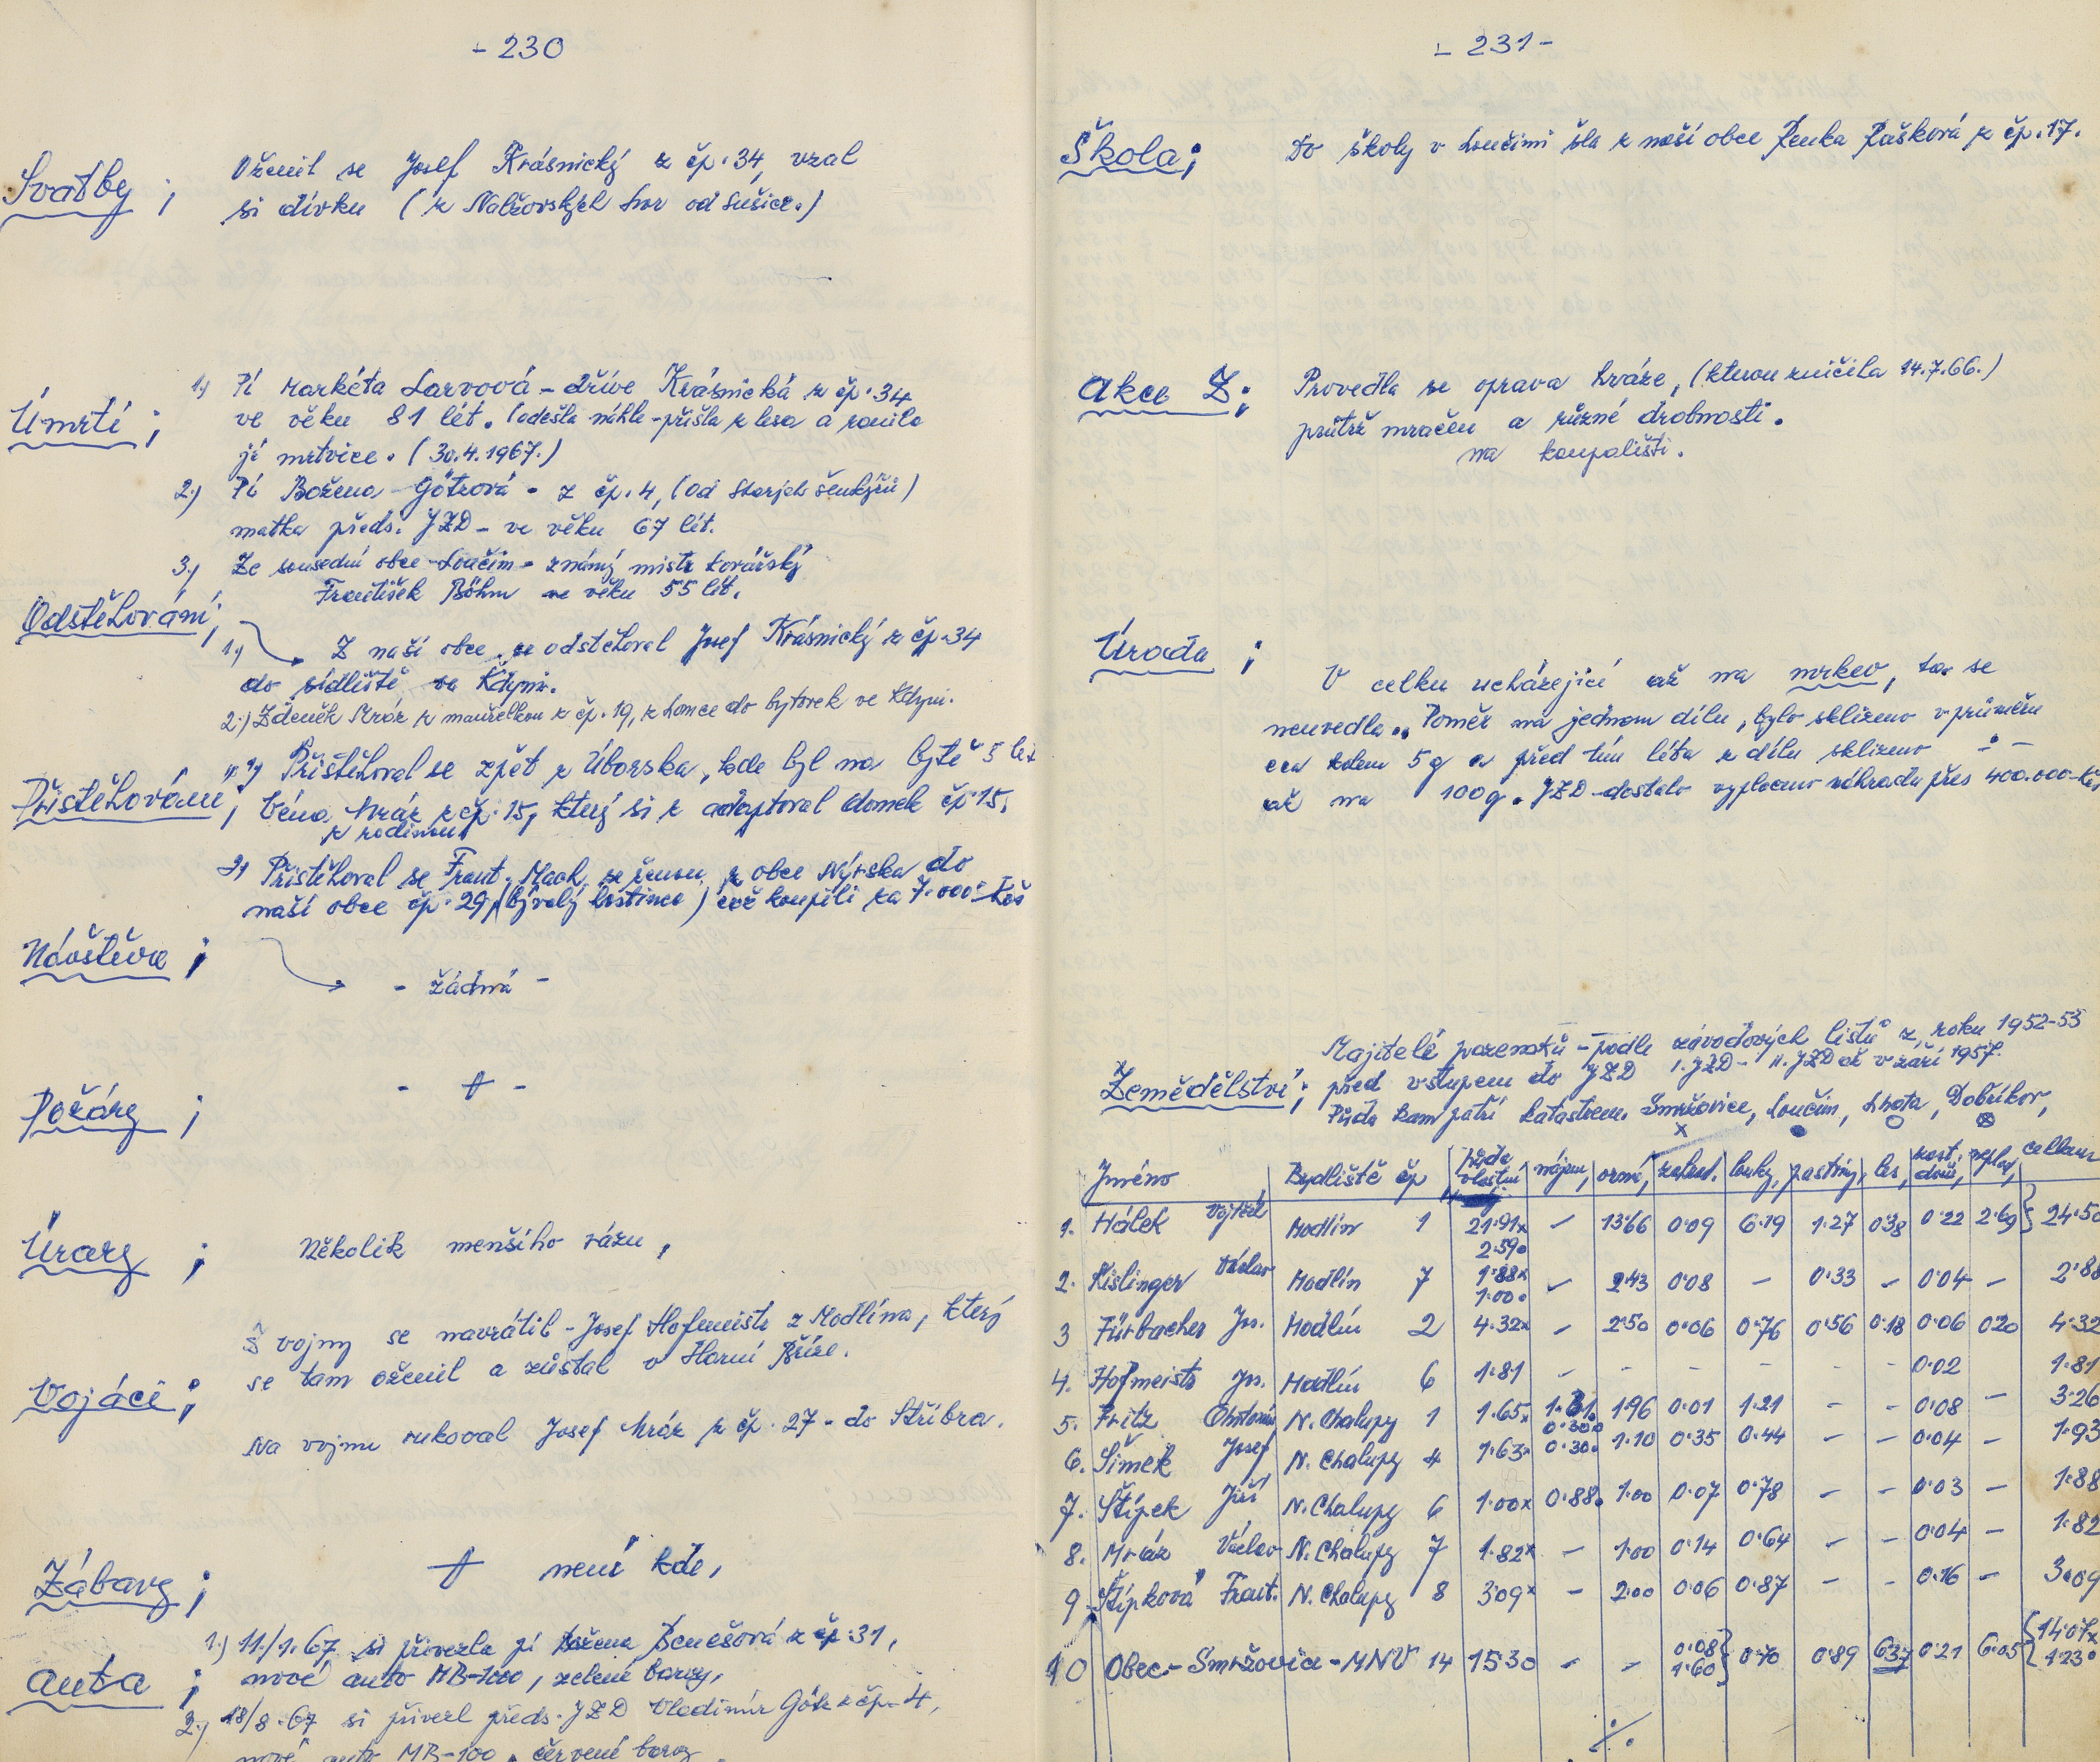 - 230
Svatby ;
Oženil se Josef Krásnický z čp. 34, vzal
si dívku ( z Nalžovských hor od Sušice.)
Úmrtí ;
1.) Pí Markéta Larvová - dříve Krásnická z čp. 34
ve věku 81 let. (odešla náhle - přišla z lesa a ranila
jí mrtvice. ( 30.4.1967.)
2.) Pí Božena Götzová - z čp. 4, (od Starých šenkýřů)
matka předs. JZD - ve věku 67 let.
3.) Ze sousední obce Loučim - známý mistr kovářský
František Böhm ve věku 55 let.
Odstěhování ;
1.) Z naší obce se odstěhoval Josef Krásnický z čp. 34
do sídliště ve Kdyni.
2.) Zdeněk Mráz z manželkou z čp. 19, z domce do bytovek ve Kdyni.
Přistěhování ;
1.) Přistěhoval se zpět z Úborska, kde byl na bytě 5 let
Véna Mráz z čp. 15, který si z adaptoval domek čp 15.
z rodinou
2) Přistěhoval se Frant. Mach, se ženou z obce Nýrska do
naší obce čp. 29, (bývalý hostinec) což koupili za 7.000.- Kčs
Návštěva ;
- žádná -
Požáry ;
- + -
Úrazy ;
Několik menšího rázu,
Vojáci ;
S vojny se navrátil - Josef Hofmeistr z Modlína, který
se tam oženil a zůstal v Horní Bříze.
Na vojnu rukoval Josef Mráz z čp. 27 - do Stříbra.
Zábavy ;
+ není kde,
auta ;
1.) 11./1.67 si přivezla pí Božena Benešová z čp. 31,
nové auto MB-1000, zelené barvy,
2.) 18/8.67 si přivezl předs. JZD Vladimír Götz z čp. 4,
nové auto MB-100, červené barvy
- 231 -
Škola ;
Do školy v Loučimi šla z naší obce Zenka Rašková z čp. 17.
Akce Z ;
Provedla se oprava hráze, (kterou zničila 14.7.66.)
průtrž mračen a různé drobnosti.
na koupališti.
Úroda ;
V celku ucházející až na mrkev, ta se
neuvedla.. Poměr na jednom dílu, bylo sklizeno v průměru
cca kolem 5 q a před tím léta z dílu sklizeno -:-
až na 100 q. JZD - dostalo vyplaceno náhradu přes 400.000 - Kčs
Zemědělství ;
Majitelé pozemků - podle závodových listů z roku 1952-53
před vstupem do JZD I. JZD - II. JZD až v září 1957.
Půda kam patří katastrem. Smržovice, Loučim, Lhota, Dobříkov,
x ● ○ ⊗
Jméno Bydliště čp půda vlastní nájem, orné, zahrad. louky, pastviny, les, zast. dvůr, neplod, celkem
1. Hálek Vojtěch Modlín 1 21.91x 2.59● - 13.66 0.09 6.19 1.27 0.38 0.22 2.69 } 24.50
2. Kislinger Václav Modlín 7 1.88x 1.00● - 2.43 0.08 - 0.33 - 0.04 - 2.88
3 Fürbacher Jos. Modlín 2 4.32x - 2.50 0.06 0.76 0.56 0.18 0.06 0.20 4.32
4. Hofmeistr Jos. Modlín 6 1.81 - - - - - - 0.02 1.81
5. Fritz N. Chalupy 1 1.65x 0.30 1.96 0.01 1.21 - - 0.08 - 3.26
6. Šimek Josef N. Chalupy 4 1.63x 0.30● 1.10 0.35 0.44 - - 0.04 - 1.93
7. Štípek Jiří N. Chalupy 6 1.00x 0.88● 1.00 0.07 0.78 - - 0.03 - 1.88
8. Mráz Václav N. Chalupy 7 1.82x - 1.00 0.14 0.64 - - 0.04 - 1.82
9. Štípková Frant. N. Chalupy 8 3.09x - 2.00 0.06 0.87 - - 0.16 - 3.09
10 Obec - Smržovice - MNV 14 15.30 - - 0.08 1.60 } 0.70 0.89 6.37 0.21 6.05 { 14.07x 1.23●
./.